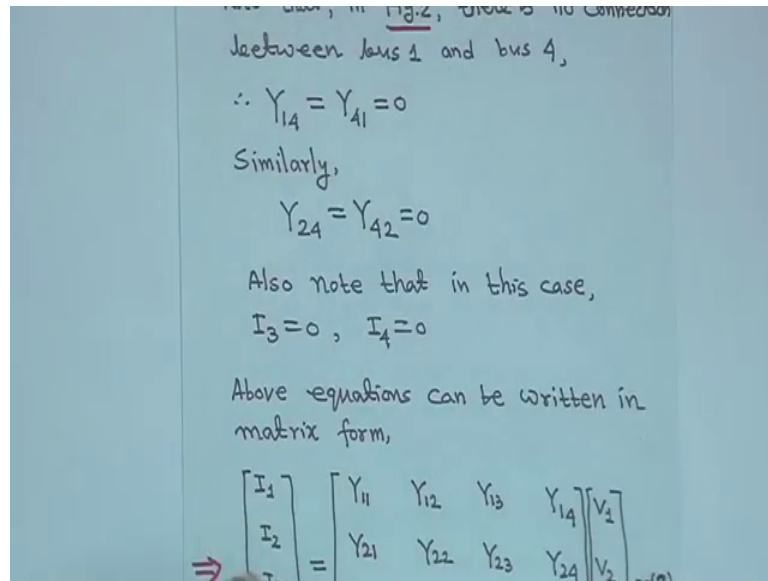 Fig.2, there is no connection
between bus 1 and bus 4,
∴ Y14 = Y41 = 0
Similarly,
Y24 = Y42 = 0
Also note that in this case,
I3 = 0 , I4 = 0
Above equations can be written in
matrix form,
[I1] [Y11 Y12 Y13 Y14][V1]
⇒ [I2] = [Y21 Y22 Y23 Y24][V2]